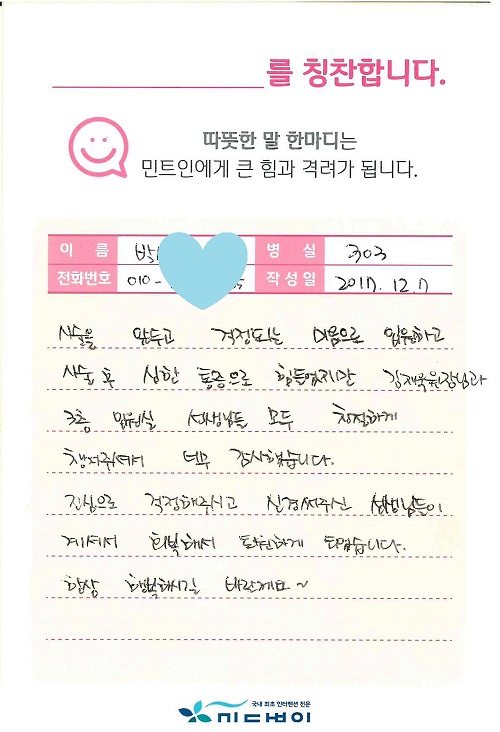 를 칭찬합니다.
따뜻한 말 한마디는
민트인에게 큰 힘과 격려가 됩니다.
이 름 박 병 실 303
전화번호 010- 작성일 2017. 12. 7
시술을 앞두고 걱정되는 마음으로 입원하고
시술 후 심한 통증으로 힘들었지만 김재욱원장님과
3층 입원실 선생님들 모두 친절하게
챙겨주셔서 너무 감사했습니다.
진심으로 걱정해주시고 신경써주신 선생님들이
계셔서 회복해서 퇴원하게 되었습니다.
항상 행복하시길 바랄게요~
국내 최초 인터벤션 전문
민트병원